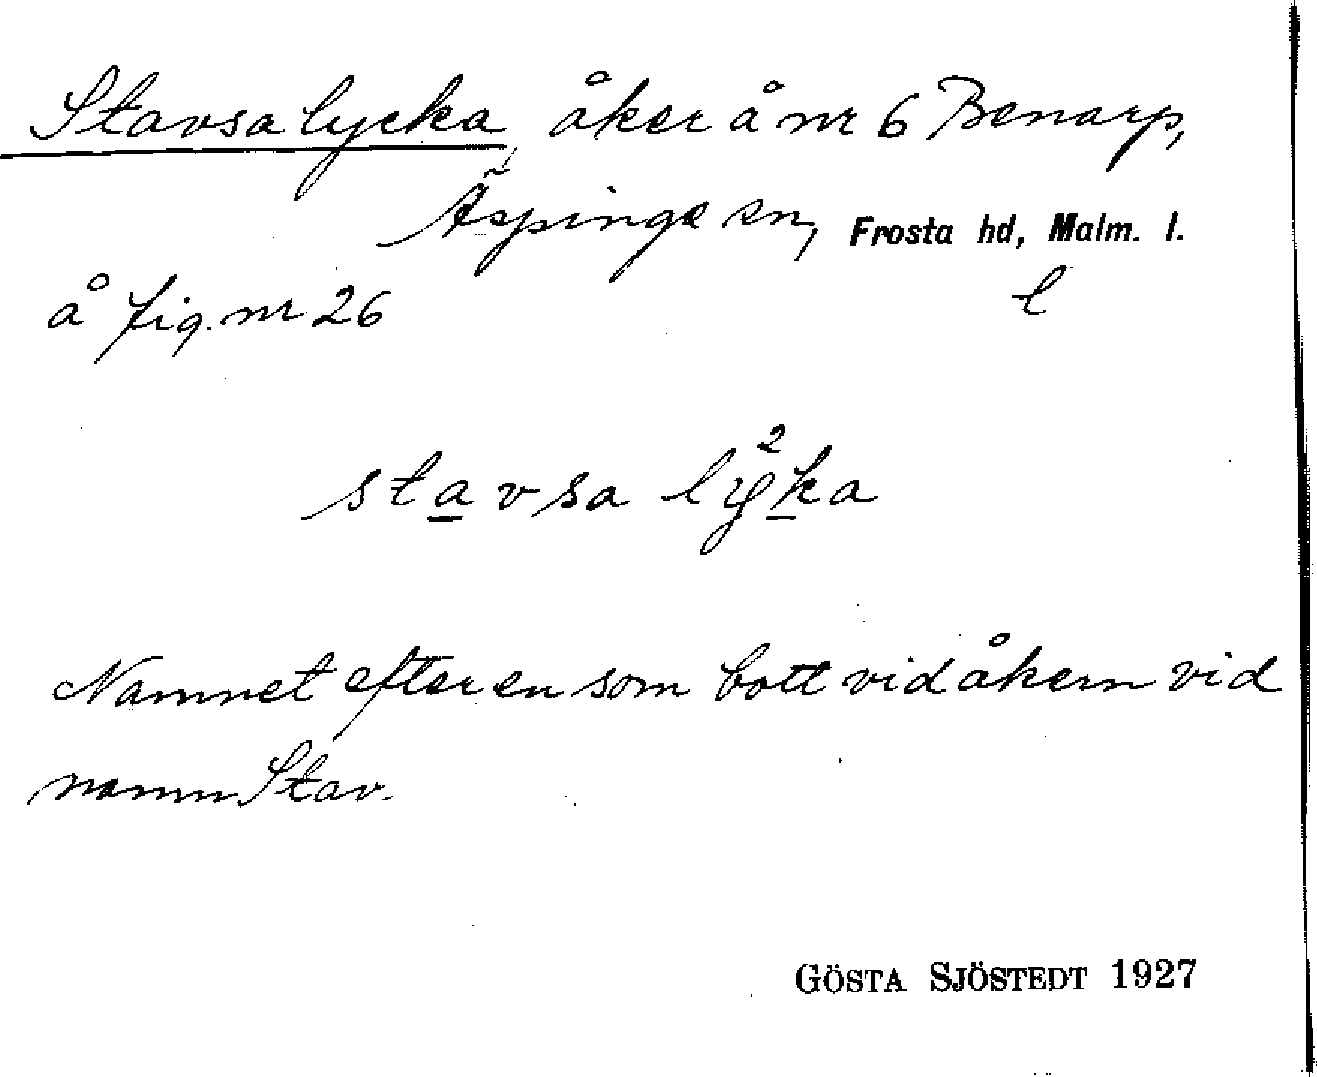 Stavsalycka, åker å nr 6 Benarp,
Äspinge sn, Frosta hd, Malm. l.
å fig. nr 26 l
stavsa lyka
2
Namnet efter en som bott vid åkern vid
namn Stav.
GÖSTA SJÖSTEDT 1927